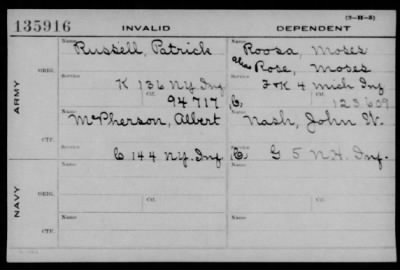 (3-H-5)
135916 INVALID DEPENDENT
ARMY
ORIG.
Name Russell, Patrick
Service K 136 N.Y. Inf
Ctf. 94717
Name Roosa, Moses
alias Rose, Moses
Service F & K 4 Mich Inf
C. Ctf. 123609
CTF.
Name McPherson, Albert
C 144 N.Y. Inf
Name Nash, John W.
C, G 5 N.H. Inf.
NAVY
ORIG.
Name
Service
Ctf.
Name
Service
Ctf.
CTF.
Name
Name